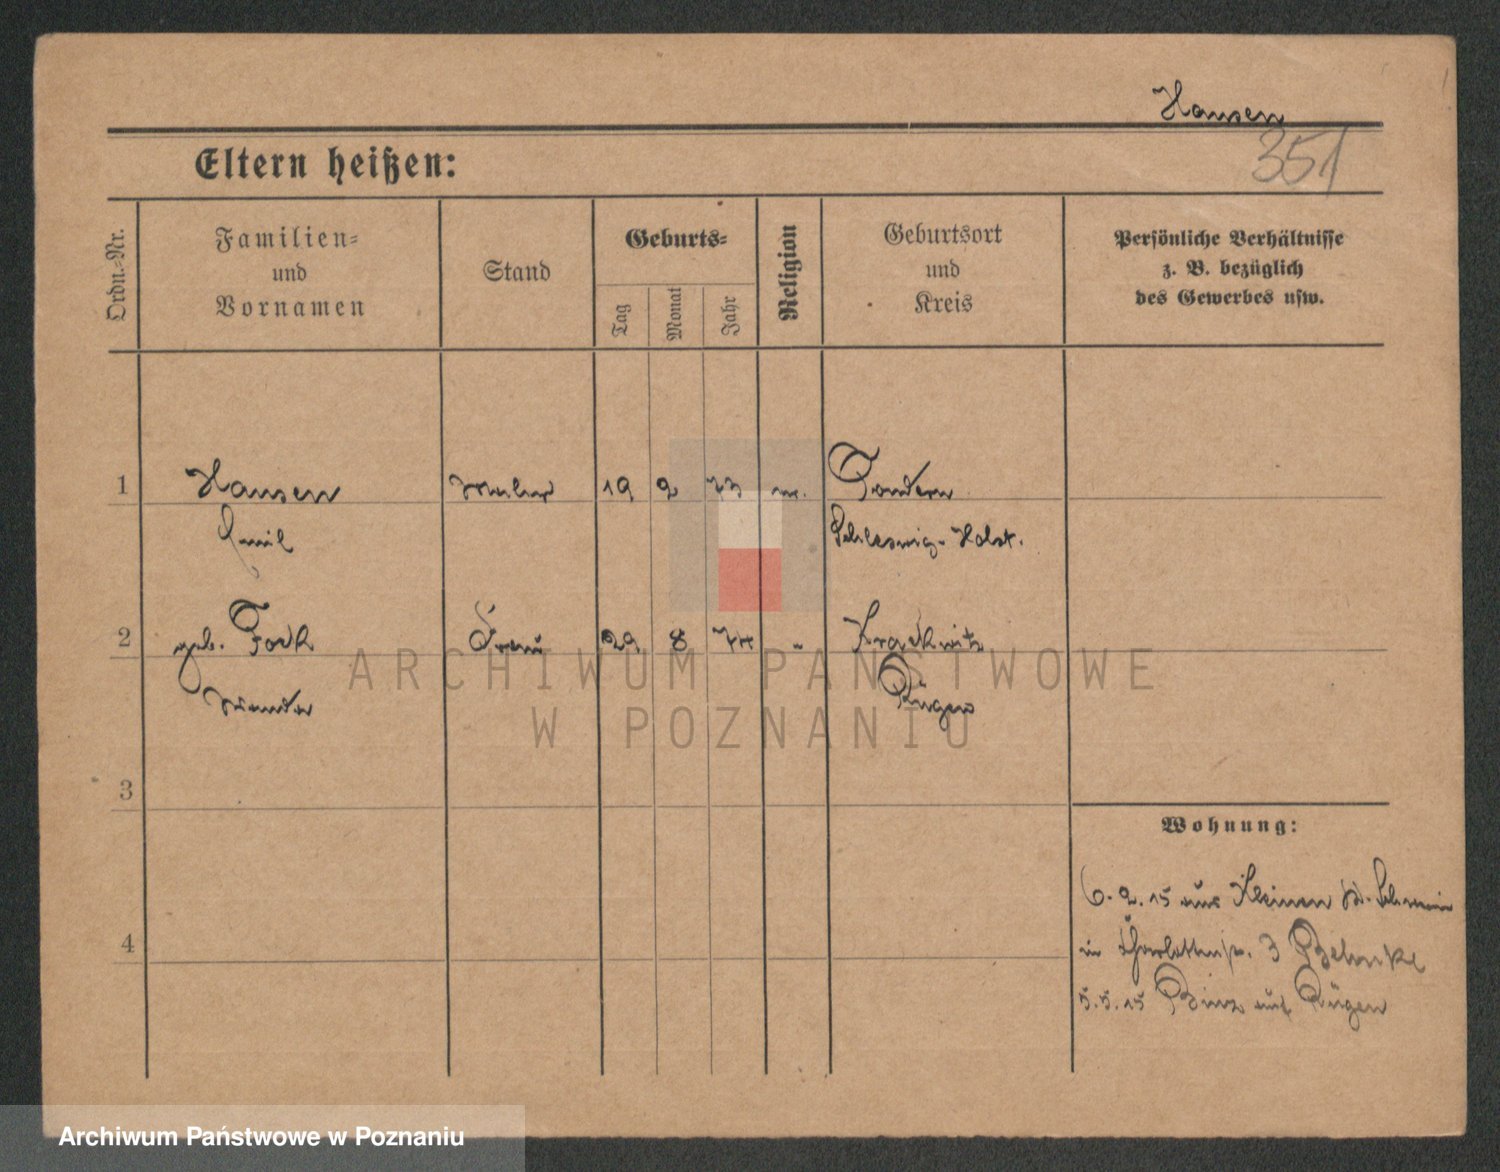 Hansen
351
Eltern heißen:
Ordn.-Nr.
Familien-
und
Vornamen
Stand
Geburts-
Tag
Monat
Jahr
Religion
Geburtsort
und
Kreis
Persönliche Verhältnisse
z. B. bezüglich
des Gewerbes usw.
1
Hansen
Maler
19
2
73
ev.
Tondern
Emil
Schleswig-Holst.
2
geb. Fock
Frau
29
8
74
"
Krackwitz
Wanda
Rügen
ARCHIWUM PAŃSTWOWE
W POZNANIU
3
Wohnung:
6.2.15 aus
in Charlottenstr. 3 Behnke
4
5.5.15 Binz auf Rügen
Archiwum Państwowe w Poznaniu